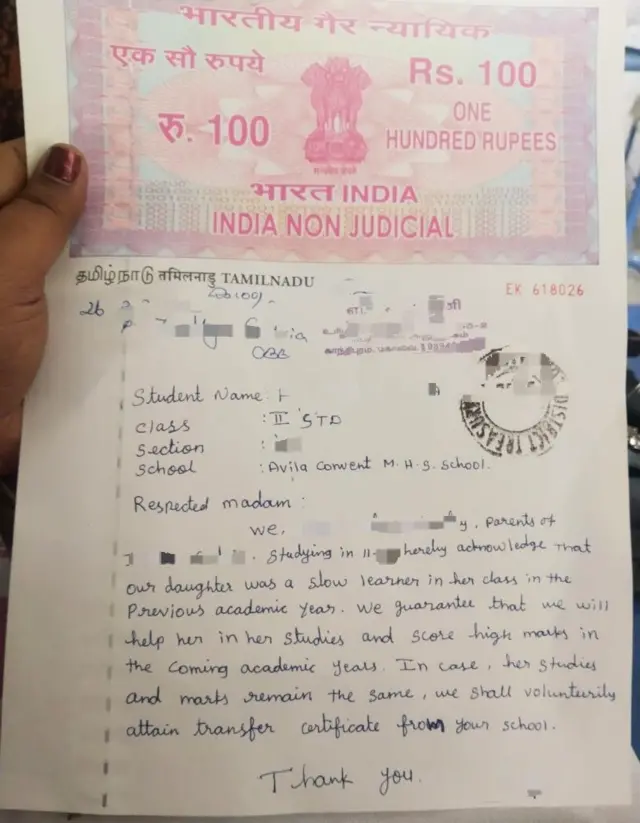 भारतीय गैर न्यायिक
एक सौ रुपये
Rs. 100
रु. 100
ONE
HUNDRED RUPEES
भारत INDIA
INDIA NON JUDICIAL
தமிழ்நாடு तमिलनाडु TAMILNADU
EK 618026
26
CBE
DISTRICT TREASURY
Student Name :
class : II STD
Section :
School : Avila Convent M.H.S. School.
Respected madam :
we, Parents of
Studying in II- hereby acknowledge that
our daughter was a slow learner in her class in the
Previous academic year. We guarantee that we will
help her in her studies and score high marks in
the coming academic years. In case, her studies
and marks remain the same, we shall volunturily
attain transfer certificate from your school.
Thank you.